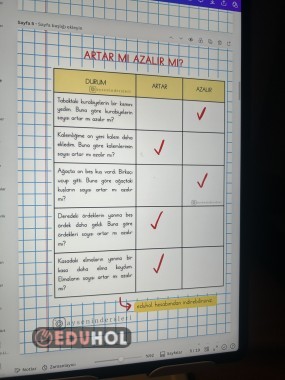 Sayfa 8 - Sayfa başlığı ekleyin
ARTAR MI AZALIR MI?
DURUM
ARTAR
AZALIR
Tabaktaki kurabiyelerin bir kısmını
yedim. Buna göre kurabiyelerin
sayısı artar mı azalır mı?
Kalemliğime on yeni kalem daha
ekledim. Buna göre kalemlerimin
sayısı artar mı azalır mı?
Ağaçta on beş kuş vardı. Birkaçı
uçup gitti. Buna göre ağaçtaki
kuşların sayısı artar mı azalır
mı?
Deredeki ördeklerin yanına beş
ördek daha geldi. Buna göre
ördekleri sayısı artar mı azalır
mı?
Kasadaki elmaların yanına bir
kasa daha elma koydum.
Elmaların sayısı artar mı azalır
mı?
eduhol hesabımdan indirebilirsiniz.
@aysenindersleri
EDUHOL
Notlar
Zamanlayıcı
Sayfalar